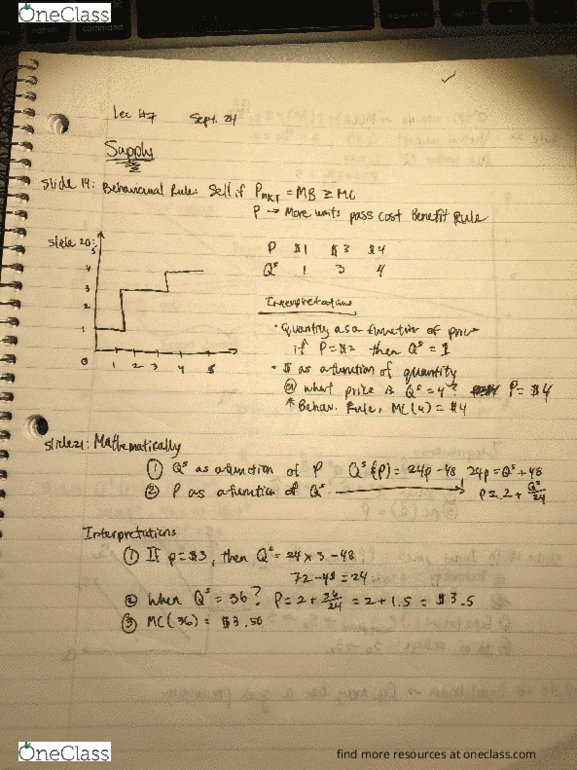 OneClass
command
Lec 4+7 Sept. 24
Supply
Slide 19: Behavioural Rule: Sell if Pmkt = MB ≥ MC
P → More units pass cost benefit rule
slide 20:
P $1 $3 $4
Qˢ 1 3 4
5
4
3
2
1
0 1 2 3 4 5
Interpretations
• Quantity as a function of price
if P = $2 then Qˢ = 1
• $ as a function of quantity
@ what price is Qˢ = 4? P = $4
* Behav. Rule, MC(4) = $4
slide 21: Mathematically
① Qˢ as a function of P Qˢ(P) = 24p - 48 24p = Qˢ + 48
② P as a function of Qˢ → P = 2 + Qˢ/24
Interpretations
① If p = $3, then Qˢ = 24 x 3 - 48
72 - 48 = 24
② When Qˢ = 36? P = 2 + 36/24 = 2 + 1.5 = $3.5
③ MC(36) = $3.50
OneClass
find more resources at oneclass.com